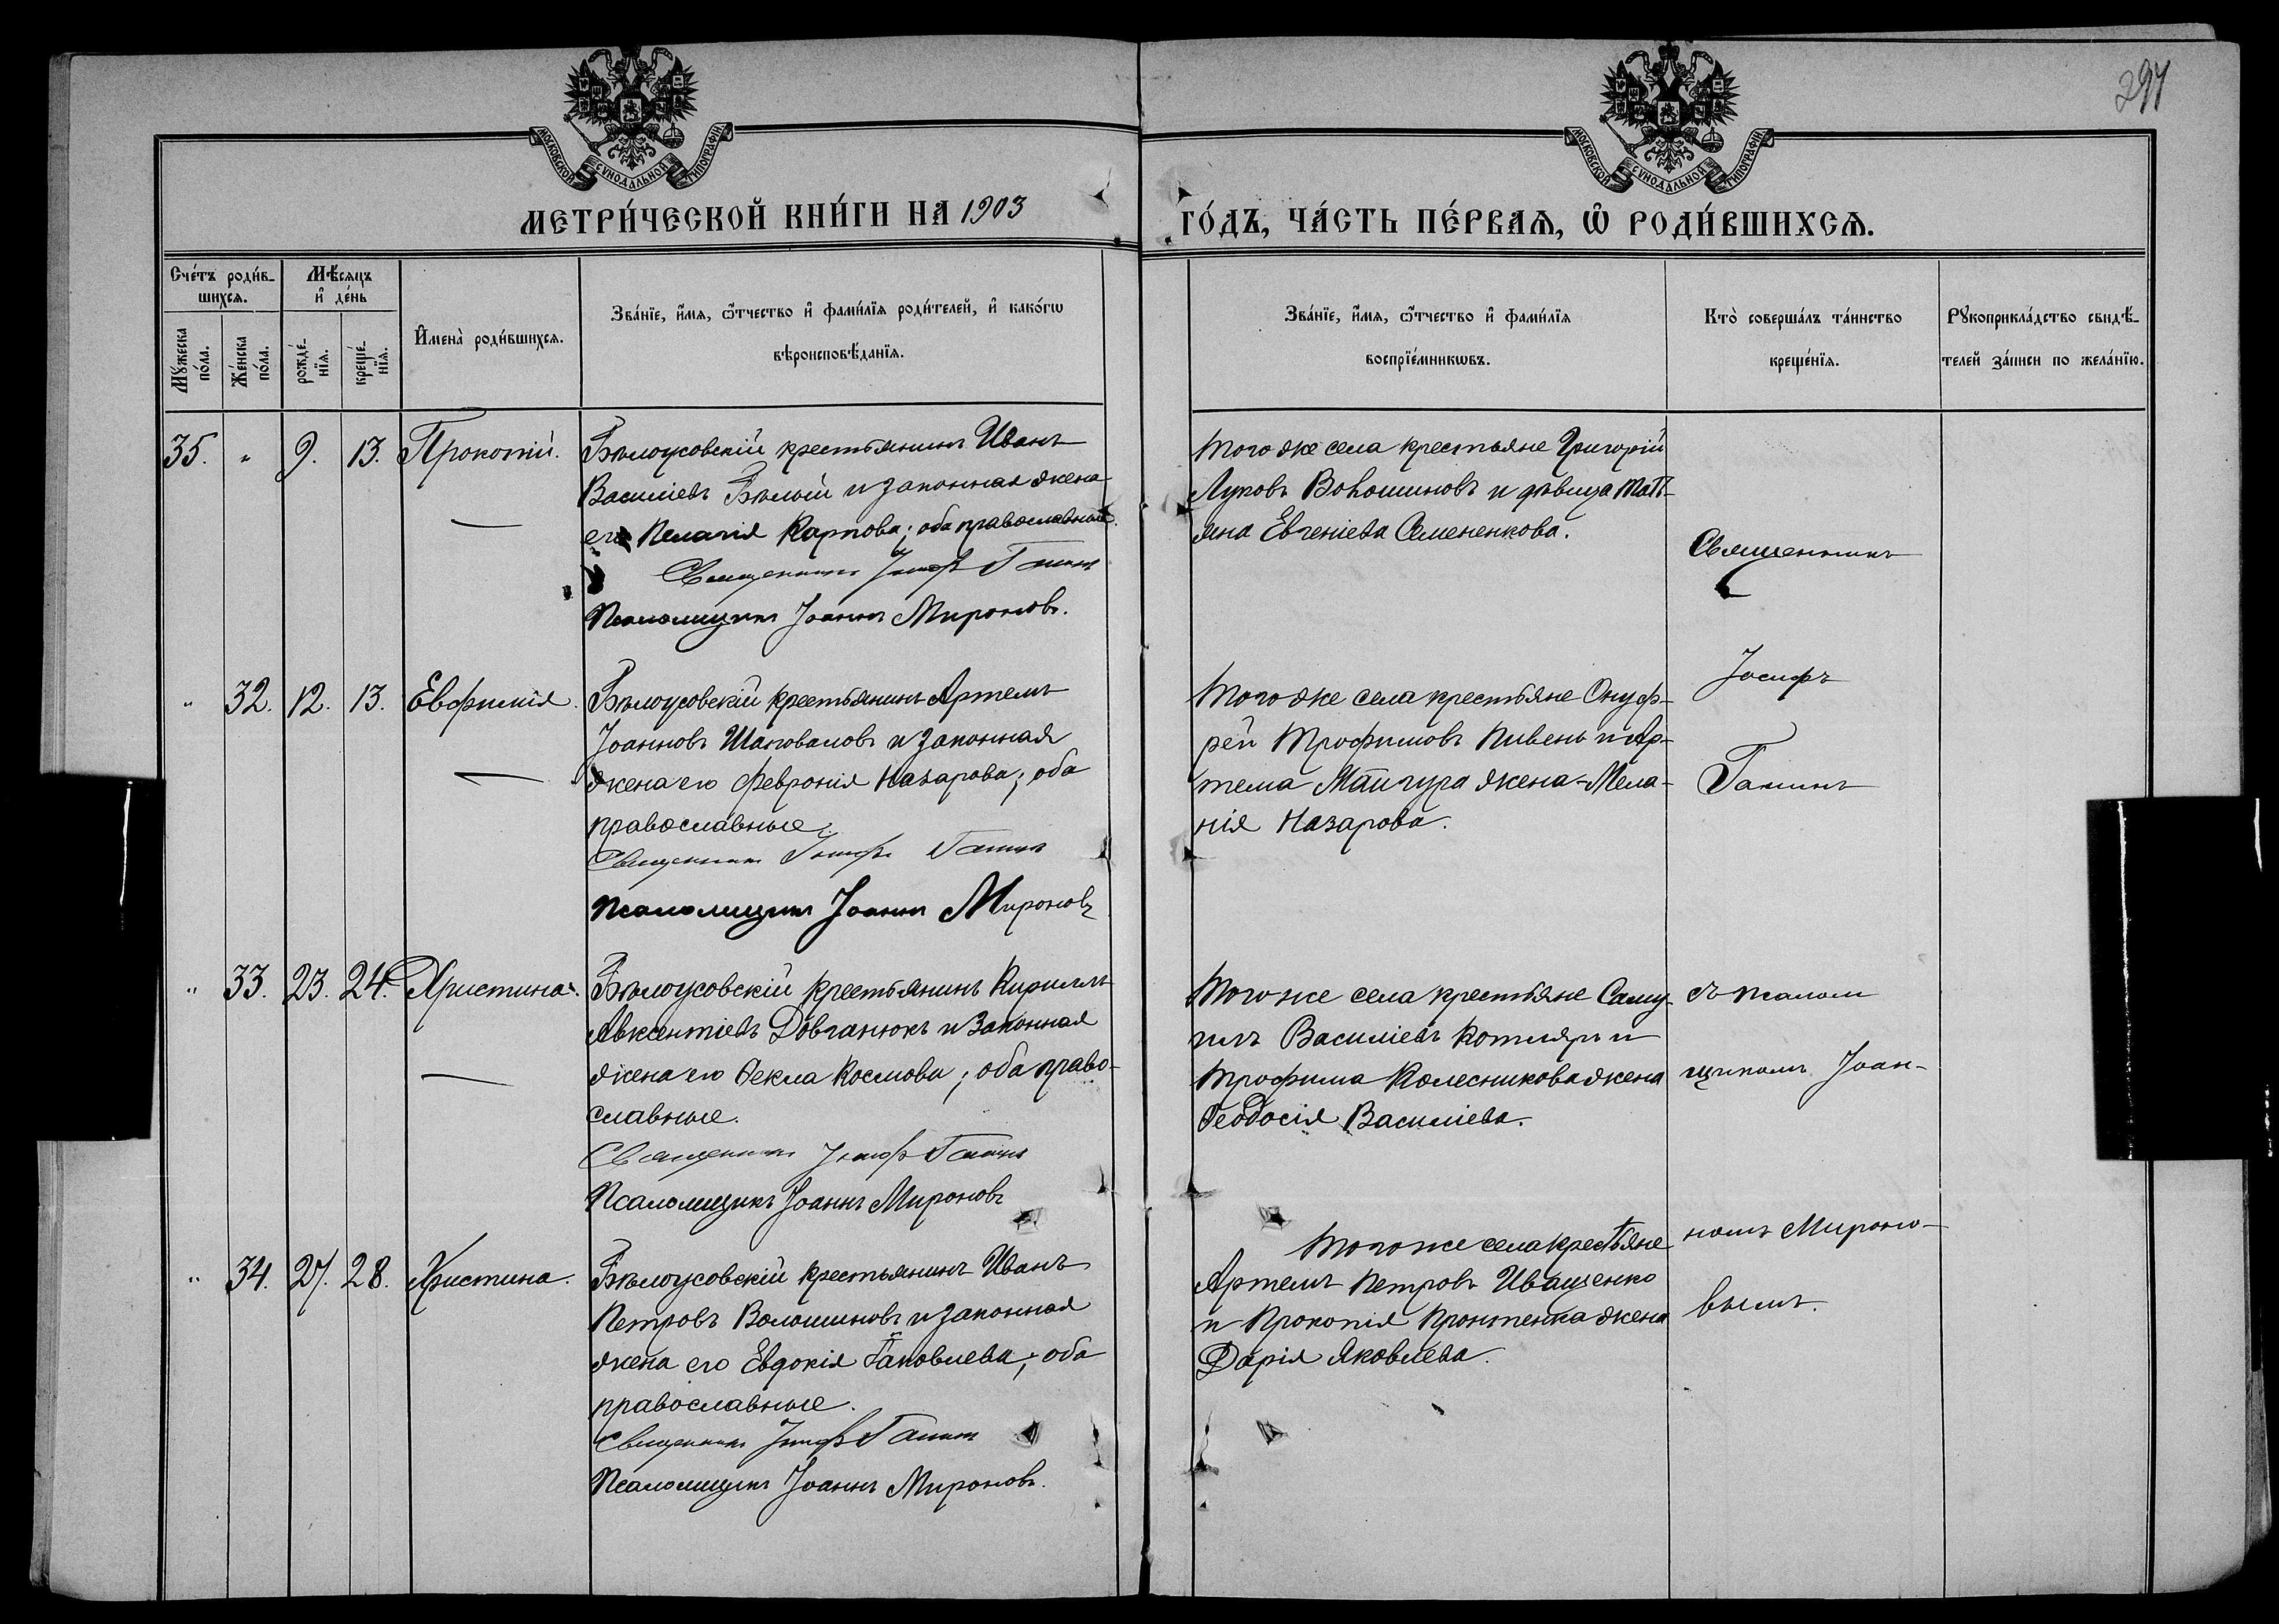 297
МОСКОВСКОЙ СУНОДАЛЬНОЙ ТИПОГРАФІИ.
МОСКОВСКОЙ СУНОДАЛЬНОЙ ТИПОГРАФІИ.
МЕТРИ́ЧЕСКОЙ КНИ́ГИ НА 1903
ГО́ДЪ, ЧА́СТЬ ПЕ́РВАѦ, Ѡ РОДИ́ВШИХСѦ.
Сче́тъ роди́в-
шихсѧ.
Мѣ́сѧцъ
и де́нь
Мꙋ́жеска
по́ла.
Же́нска
по́ла.
рожде́-
нїѧ.
креще́-
нїѧ.
Имена̀ роди́вшихсѧ.
Зва́нїе, и́мѧ, ѻ́тчество и фами́лїѧ роди́телей, и како́гѡ
вѣроисповѣ́данїѧ.
Зва́нїе, и́мѧ, ѻ́тчество и фами́лїѧ
воспрїе́мникѡвъ.
Кто̀ соверша́лъ та́инство
креще́нїѧ.
Рꙋкоприкла́дство свидѣ́-
телей за́писи по жела́нїю.
35. " 9. 13. Прокопій.
Бѣлоусовскій крестьянинъ Иванъ
Василіевъ Бѣлый и законная жена
его Пелагія Карпова; оба православные.
Священникъ Іосифъ Ганинъ
Псаломщикъ Іоаннъ Мироновъ.
Того же села крестьяне Григорій
Луковъ Волошиновъ и дѣвица Тать-
яна Евгеніева Семененкова.
" 32. 12. 13. Евфимія.
Бѣлоусовскій крестьянинъ Артемъ
Іоанновъ Шаповаловъ и законная
жена его Февронія Назарова; оба
православные.
Священникъ Іосифъ Ганинъ
Псаломщикъ Іоаннъ Мироновъ
Того же села крестьяне Онуф-
рій Трофимовъ Пивень и Ар-
тема Манчура жена Мела-
нія Назарова.
" 33. 23. 24. Христина.
Бѣлоусовскій крестьянинъ Кириллъ
Авксентіевъ Довганюкъ и законная
жена его Ѳекла Космова; оба право-
славные.
Священникъ Іосифъ Ганинъ
Псаломщикъ Іоаннъ Мироновъ
Того же села крестьяне Саму-
илъ Василіевъ Котляръ и
Трофима Колесникова жена
Ѳеодосія Василіева.
" 34. 27. 28. Христина.
Бѣлоусовскій крестьянинъ Иванъ
Петровъ Волошиновъ и законная
жена его Евдокія Іаковлева; оба
православные.
Священникъ Іосифъ Ганинъ
Псаломщикъ Іоаннъ Мироновъ.
Того же села крестьяне
Артемъ Петровъ Иващенко
и Прокопія Пронтенка жена
Дарія Яковлева.
Священникъ
Іосифъ
Ганинъ
съ псалом
щикомъ Іоан-
номъ Мироно-
вымъ.